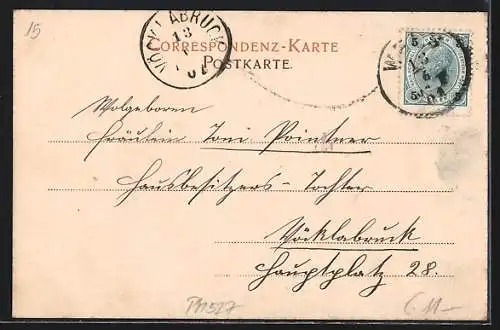 15
VÖCKLABRUCK
13
04
CORRESPONDENZ-KARTE
POSTKARTE.
5 5
5
Wolgeboren
Fräulein Toni Pointner
Hausbesitzers-Tochter
Vöcklabruck
Hauptplatz 28.